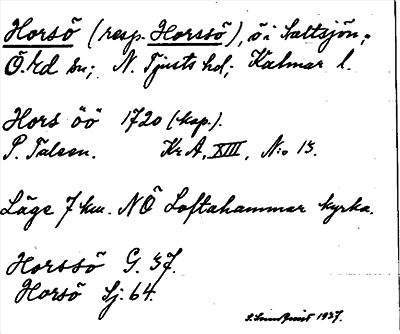 Horsö (resp. Horssö), ö i Saltsjön;
Ö. Ed sn; N. Tjusts hd; Kalmar l.
Hors öö 1720 (kop.).
P. Talsen. Kr A, XIII, N:o 13.
Läge 7 km. NÖ Loftahammar kyrka.
Horssö G. 37.
Horsö Sj: 64.
1937.